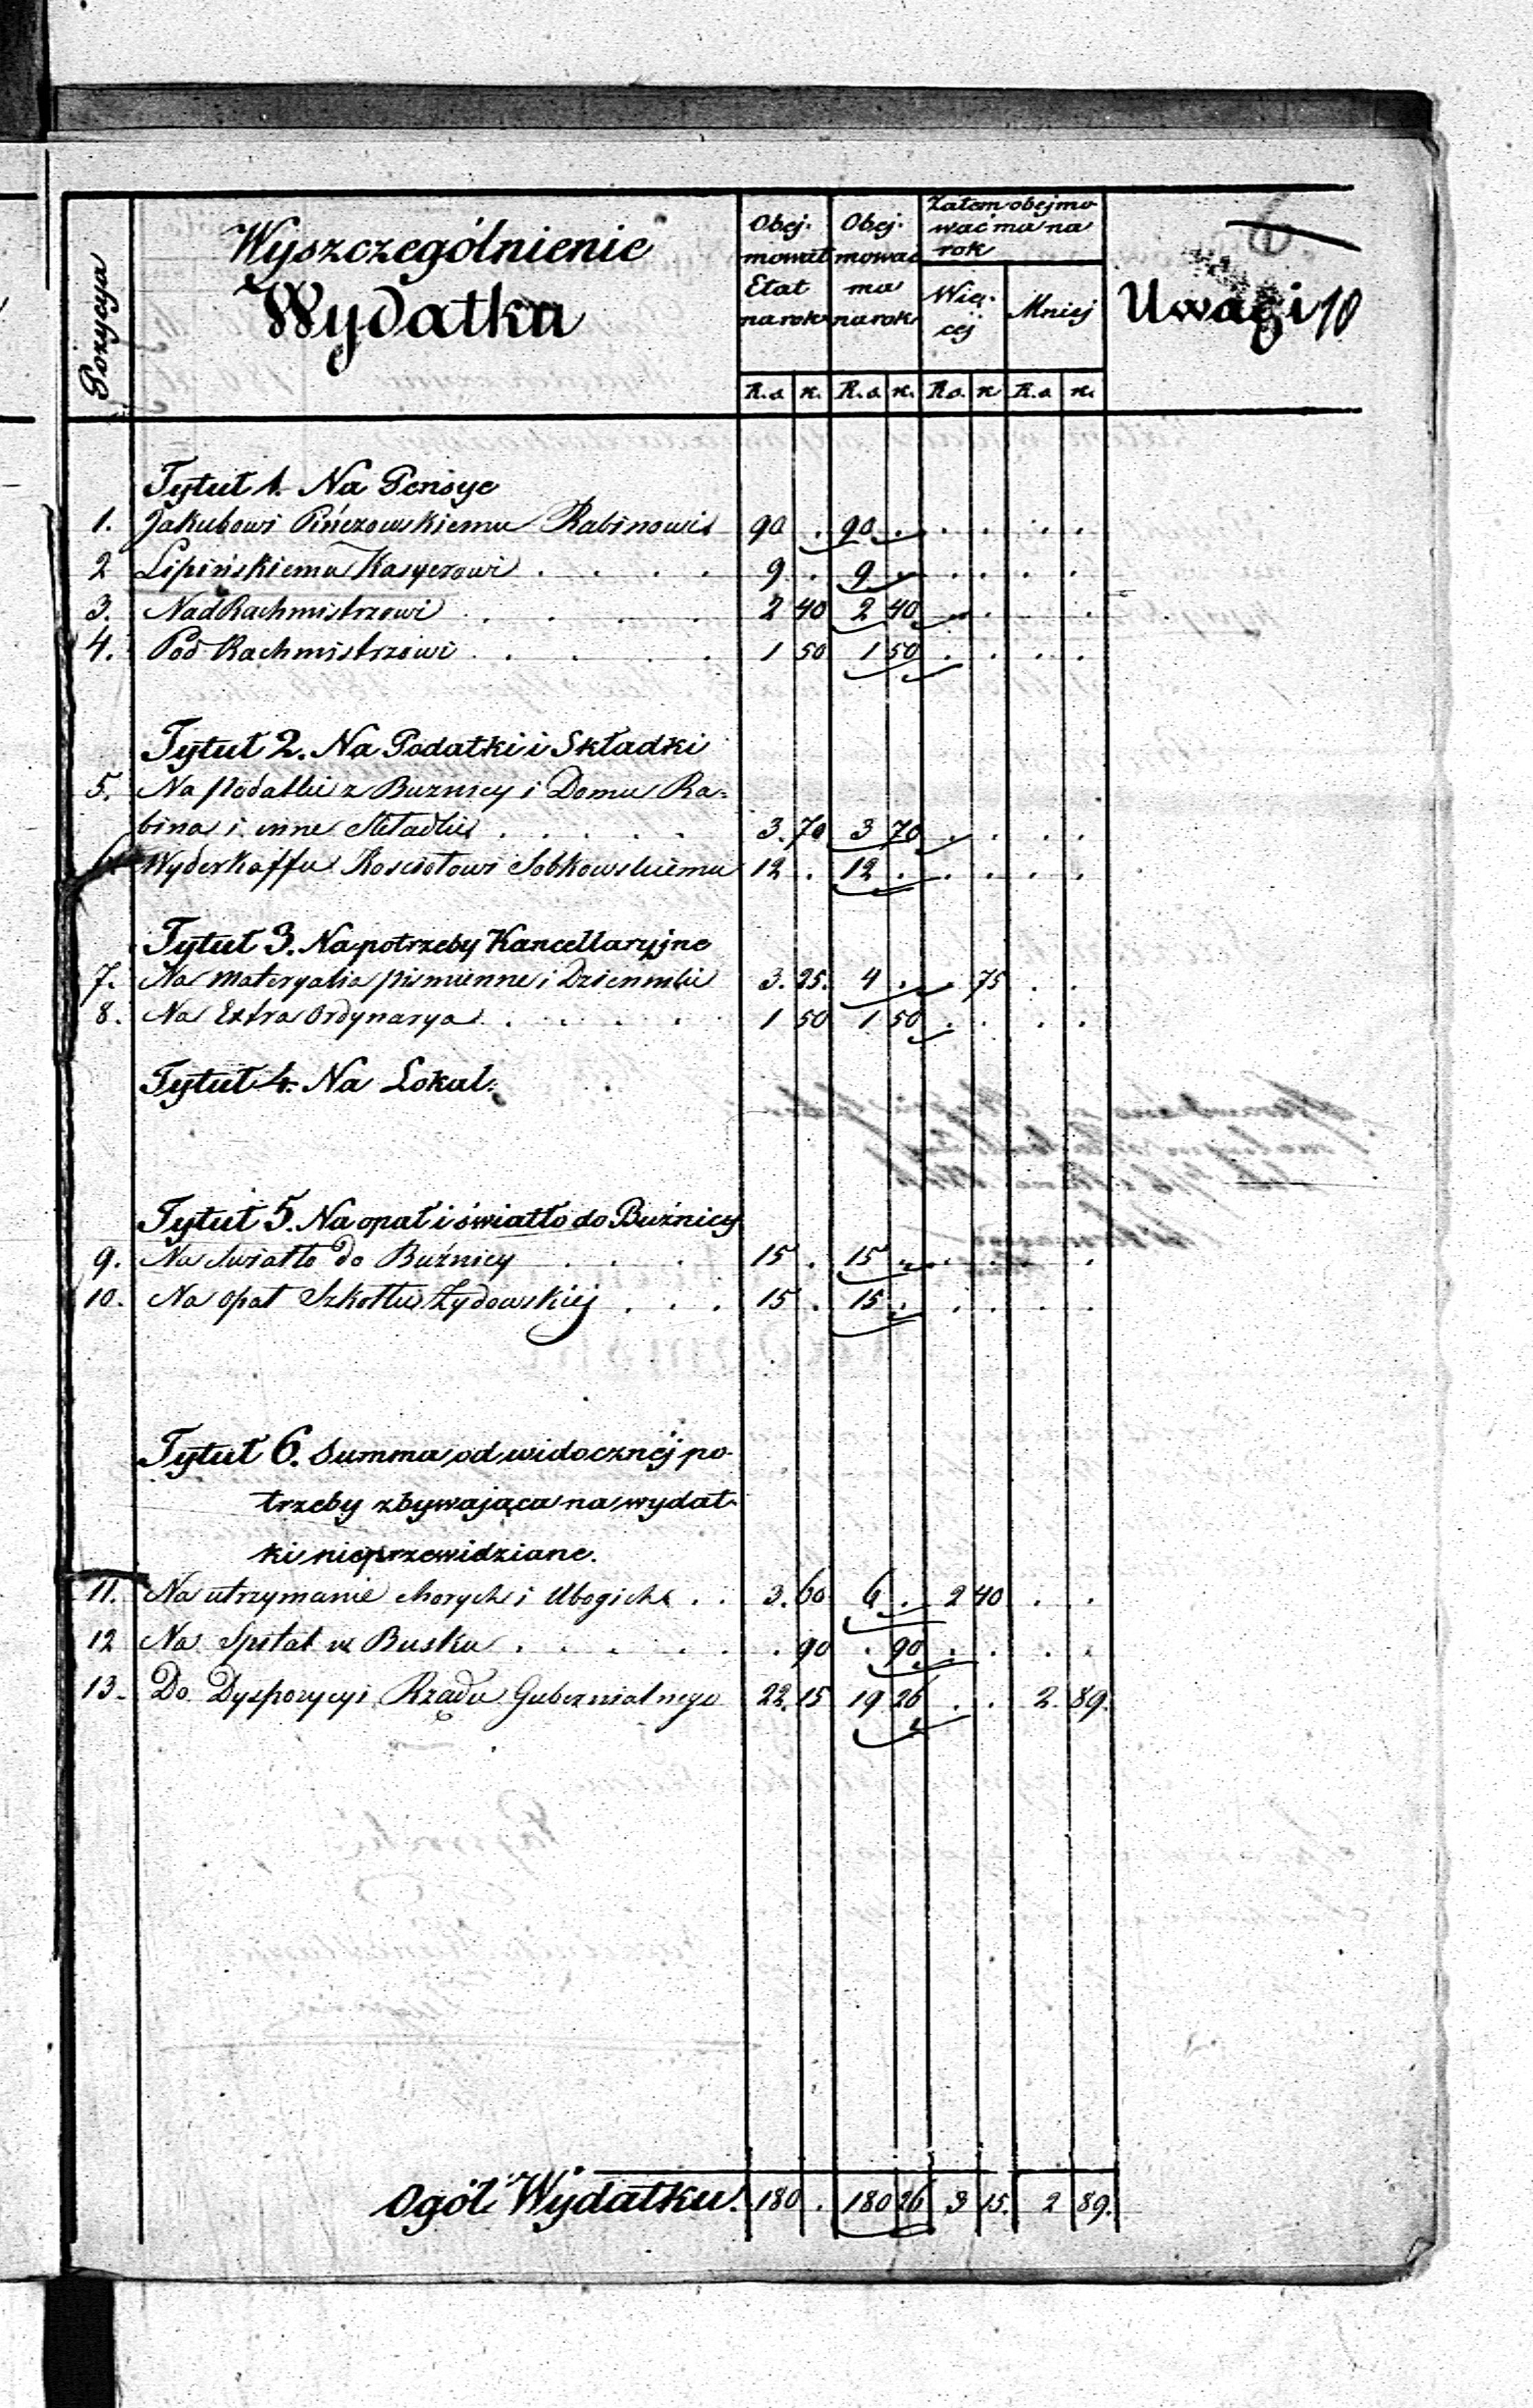 6
10
Pozycya
Wyszczególnienie
Wydatku
Obej-
mował
Etat
na rok
Obej-
mować
ma
na rok
Zatem obejmo
wać ma na
rok
Wię-
cej
Mniej
Uwagi
R.s k. R.s k. R.s. k R.s k.
Tytuł 1. Na Pensye
1. Jakubowi Pińczowskiemu Rabinowi 90 . 90 . . . . .
2 Lipińskiemu Kasyerowi . . . . 9 . 9 . . . . .
3. Nad Rachmistrzowi . . . . 2 40 2 40 . . . .
4. Pod Rachmistrzowi . . . . 1 50 1 50 . . . .
Tytuł 2. Na Podatki i Składki
5. Na Podatki z Buznicy i Domu Ra-
bina i inne Składki . . . . . 3. 70 3 70 . . . .
6. Wyderkaffu Kosciołowi Sobkowskiemu 12 . 12 . . . . .
Tytuł 3. Na potrzeby Kancellaryjne
7. Na Materyalia piśmienne i Dzienniki 3. 25. 4 . . 75 . .
8. Na Extra Ordynarya . . . . . 1 50 1 50 . . . .
Tytuł 4. Na Lokal.
Tytuł 5. Na opał i światło do Buźnicy
9. Na Swiatło do Buźnicy . . . 15 . 15 . . . . .
10. Na opał Szkołki Żydowskiej . . . 15 . 15 . . . . .
Tytuł 6. Summa od widocznéj po-
trzeby zbywająca na wydat-
ki nieprzewidziane.
11. Na utrzymanie chorych i Ubogich . . 3. 60 6 . 2 40 . .
12 Na Spital w Busku . . . . . . 90 . 90 . . . .
13. Do Dyspozycyi Rządu Gubernialnego 22. 15 19 26 . . 2. 89.
Ogół Wydatku. 180 . 180 26 3 15. 2 89.